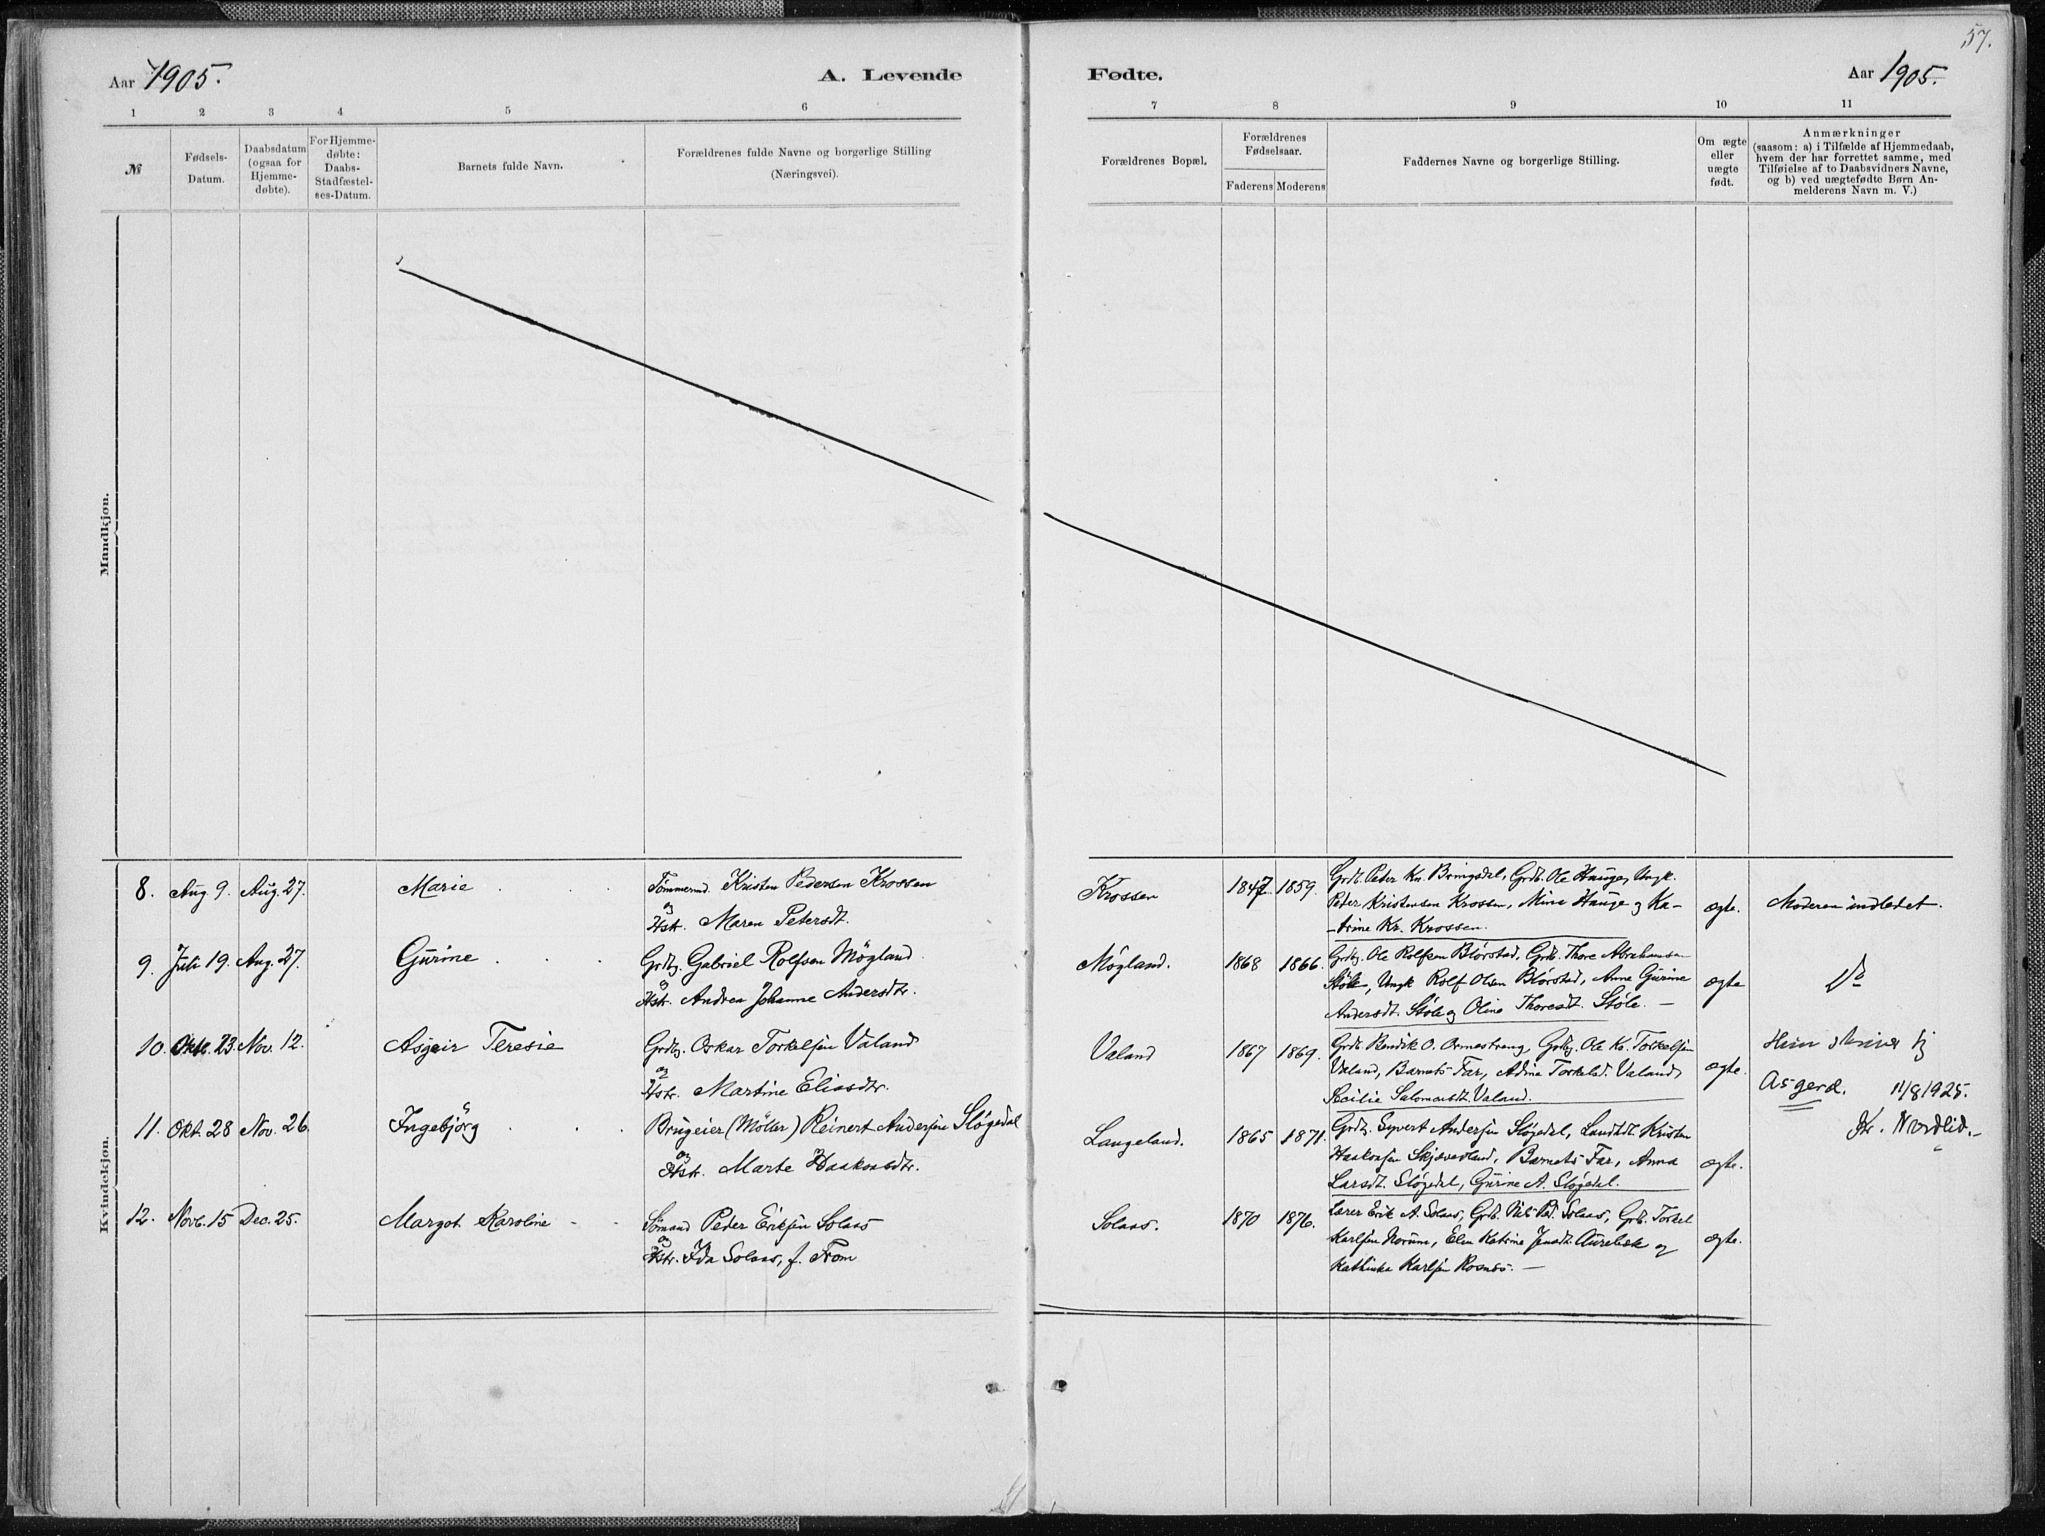 57.
Aar 1905. A. Levende Fødte. Aar 1905.
1 2 3 4 5 6 7 8 9 10 11
№
Fødsels-
Datum.
Daabsdatum
(ogsaa for
Hjemme-
døbte).
For Hjemme-
døbte:
Daabs-
Stadfæstel-
ses-Datum.
Barnets fulde Navn.
Forældrenes fulde Navne og borgerlige Stilling
(Næringsvei).
Forældrenes Bopæl.
Forældrenes
Fødselsaar.
Faderens Moderens
Faddernes Navne og borgerlige Stilling.
Om ægte
eller
uægte
født.
Anmærkninger
(saasom: a) i Tilfælde af Hjemmedaab,
hvem der har forrettet samme, med
Tilføielse af to Daabsvidners Navne,
og b) ved uægtefødte Børn An-
melderens Navn m. V.)
Mandkjøn.
Kvindekjøn.
8. Aug 9. Aug. 27. Marie
Tømmermd. Kristen Pedersen Krossen
og
Hstr. Maren Petersdt.
Krossen 1847 1859.
Grdb. Peder Kr. Bringsdal, Grdb. Ole Hauge, Ungk.
Peder Kristensen Krossen, Mina Hauge og Ka-
-trine Kr. Krossen.
ægte. Moderen indledet.
9. Juli 19. Aug. 27. Gurine
Grdbg. Gabriel Rolfsen Møgland
og
Hstr. Andrea Johanne Andersdtr.
Møgland. 1868 1866.
Grdbg. Ole Rolfsen Blørstad, Grdb. Thore Abrahamsen
Støle, Ungk Rolf Olsen Blørstad, Anne Gurine
Andersdt. Støle og Oline Thoresdt. Støle. —
ægte Do
10. Okt. 23. Nov. 12. Asgeir Teresie
Grdbg. Oskar Torkelsen Valand
og
Hstr. Martine Eliasdtr.
Valand 1867 1869.
Grdb. Bendik O. Ormestrang, Grdbg. Ole Kr. Torkelsen
Valand, Barnets Far, Adina Torkelsd. Valand,
Secilie Salomonsdt. Valand.
ægte.
Hun skriver sig
Asgerd. 11/8 1925.
Nordlid.
11. Okt. 28 Nov. 26. Ingebjørg
Brugeier (Møller) Reinert Andersen Sløgedal
og
Hstr. Marte Haakonsdtr.
Langeland. 1865 1871.
Grdbg. Syvert Andersen Sløgedal, Landhdl. Kristen
Haakonsen Skjævedland, Barnets Far, Anna
Larsdt. Sløgedal, Gurine A. Sløgedal.
ægte.
12. Novb. 15 Dec. 25. Margot Karoline
Sømand Peder Eriksen Solaas
og
Hstr. Ida Solaas, f. From
Solaas. 1870 1876.
Lærer Erik A. Solaas, Grdb. Nils Pd. Solaas, Grdb. Torkel
Karlsen Norum, Elen Katrine Jensdt. Aurebek og
Kathinka Karlsen Rosnes. —
ægte.